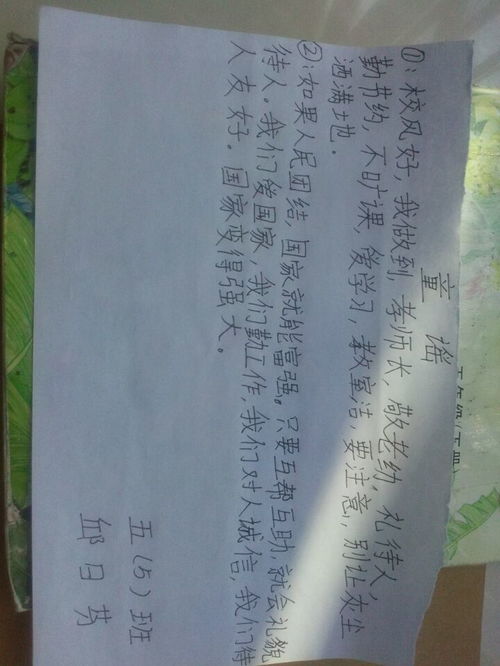 童谣
①:校风好,我做到,孝师长,敬老幼,礼待人,
勤书约,不旷课,爱学习,教室洁,要注意,别让灰尘
洒满地。
②:如果人民团结,国家就能富强。只要互帮互助,就会礼貌
待人。我们爱国家,我们勤工作,我们对人诚信,我们待
人友好。国家变得强大。
五(5)班
邱日芬
五年级(下册)